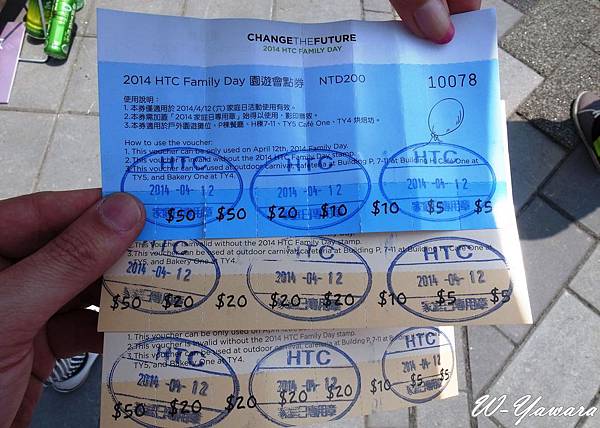 CHANGETHEFUTURE
2014 HTC FAMILY DAY
2014 HTC Family Day 園遊會點券 NTD200 10078
使用說明：
1. 本券僅適用於 2014/4/12 (六) 家庭日活動使用有效。
2. 本券需加蓋「2014 家庭日專用章」始得以使用，影印無效。
3. 本券適用於戶外園遊攤位、P棟餐廳、H棟7-11、TY5 Café One、TY4 烘焙坊。
How to use the voucher:
1. This voucher can be only used on April 12th, 2014 Family Day.
2. This voucher is invalid without the 2014 HTC Family Day stamp.
3. This voucher can be used at outdoor carnival, cafeteria at Building P, 7-11 at Building H, Café One at
TY5, and Bakery One at TY4.
HTC HTC HTC
2014 -04- 12 2014 -04- 12 2014 -04- 12
$50 $50 $20 $10 $10 $5 $5
1. This voucher can be only used on April 12th, 2014 Family Day.
2. This voucher is invalid without the 2014 HTC Family Day stamp.
3. This voucher can be used at outdoor carnival, cafeteria at Building P, 7-11 at Building H, Café One at
TY5, and Bakery One at TY4.
HTC HTC
2014 -04- 12 2014 -04- 12 2014 -04- 12
家庭日專用章 家庭日專用章 家庭日專用章
$50 $20 $20 $20 $20 $10 $5 $5
1. This voucher can be only used on April
2. This voucher is invalid without the 2014 HTC Family Day stamp.
3. This voucher can be used at outdoor carnival, cafeteria at Building P, 7-11 at
TY5, and Bakery One at TY4.
HTC HTC HTC
2014 -04- 12 2014 -04- 12 2014 -04- 12
家庭日專用章 家庭日專用章
$50 $20 $20 $20 $20 $10 $5 $5
W-Yawara